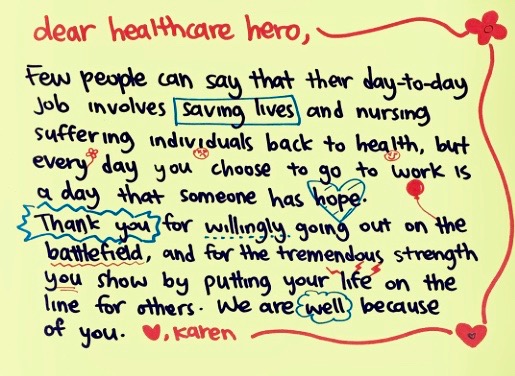 dear healthcare hero,
Few people can say that their day-to-day
job involves saving lives and nursing
suffering individuals back to health, but
every day you choose to go to work is
a day that someone has hope.
Thank you for willingly going out on the
battlefield, and for the tremendous strength
you show by putting your life on the
line for others. We are well because
of you. ♥, Karen